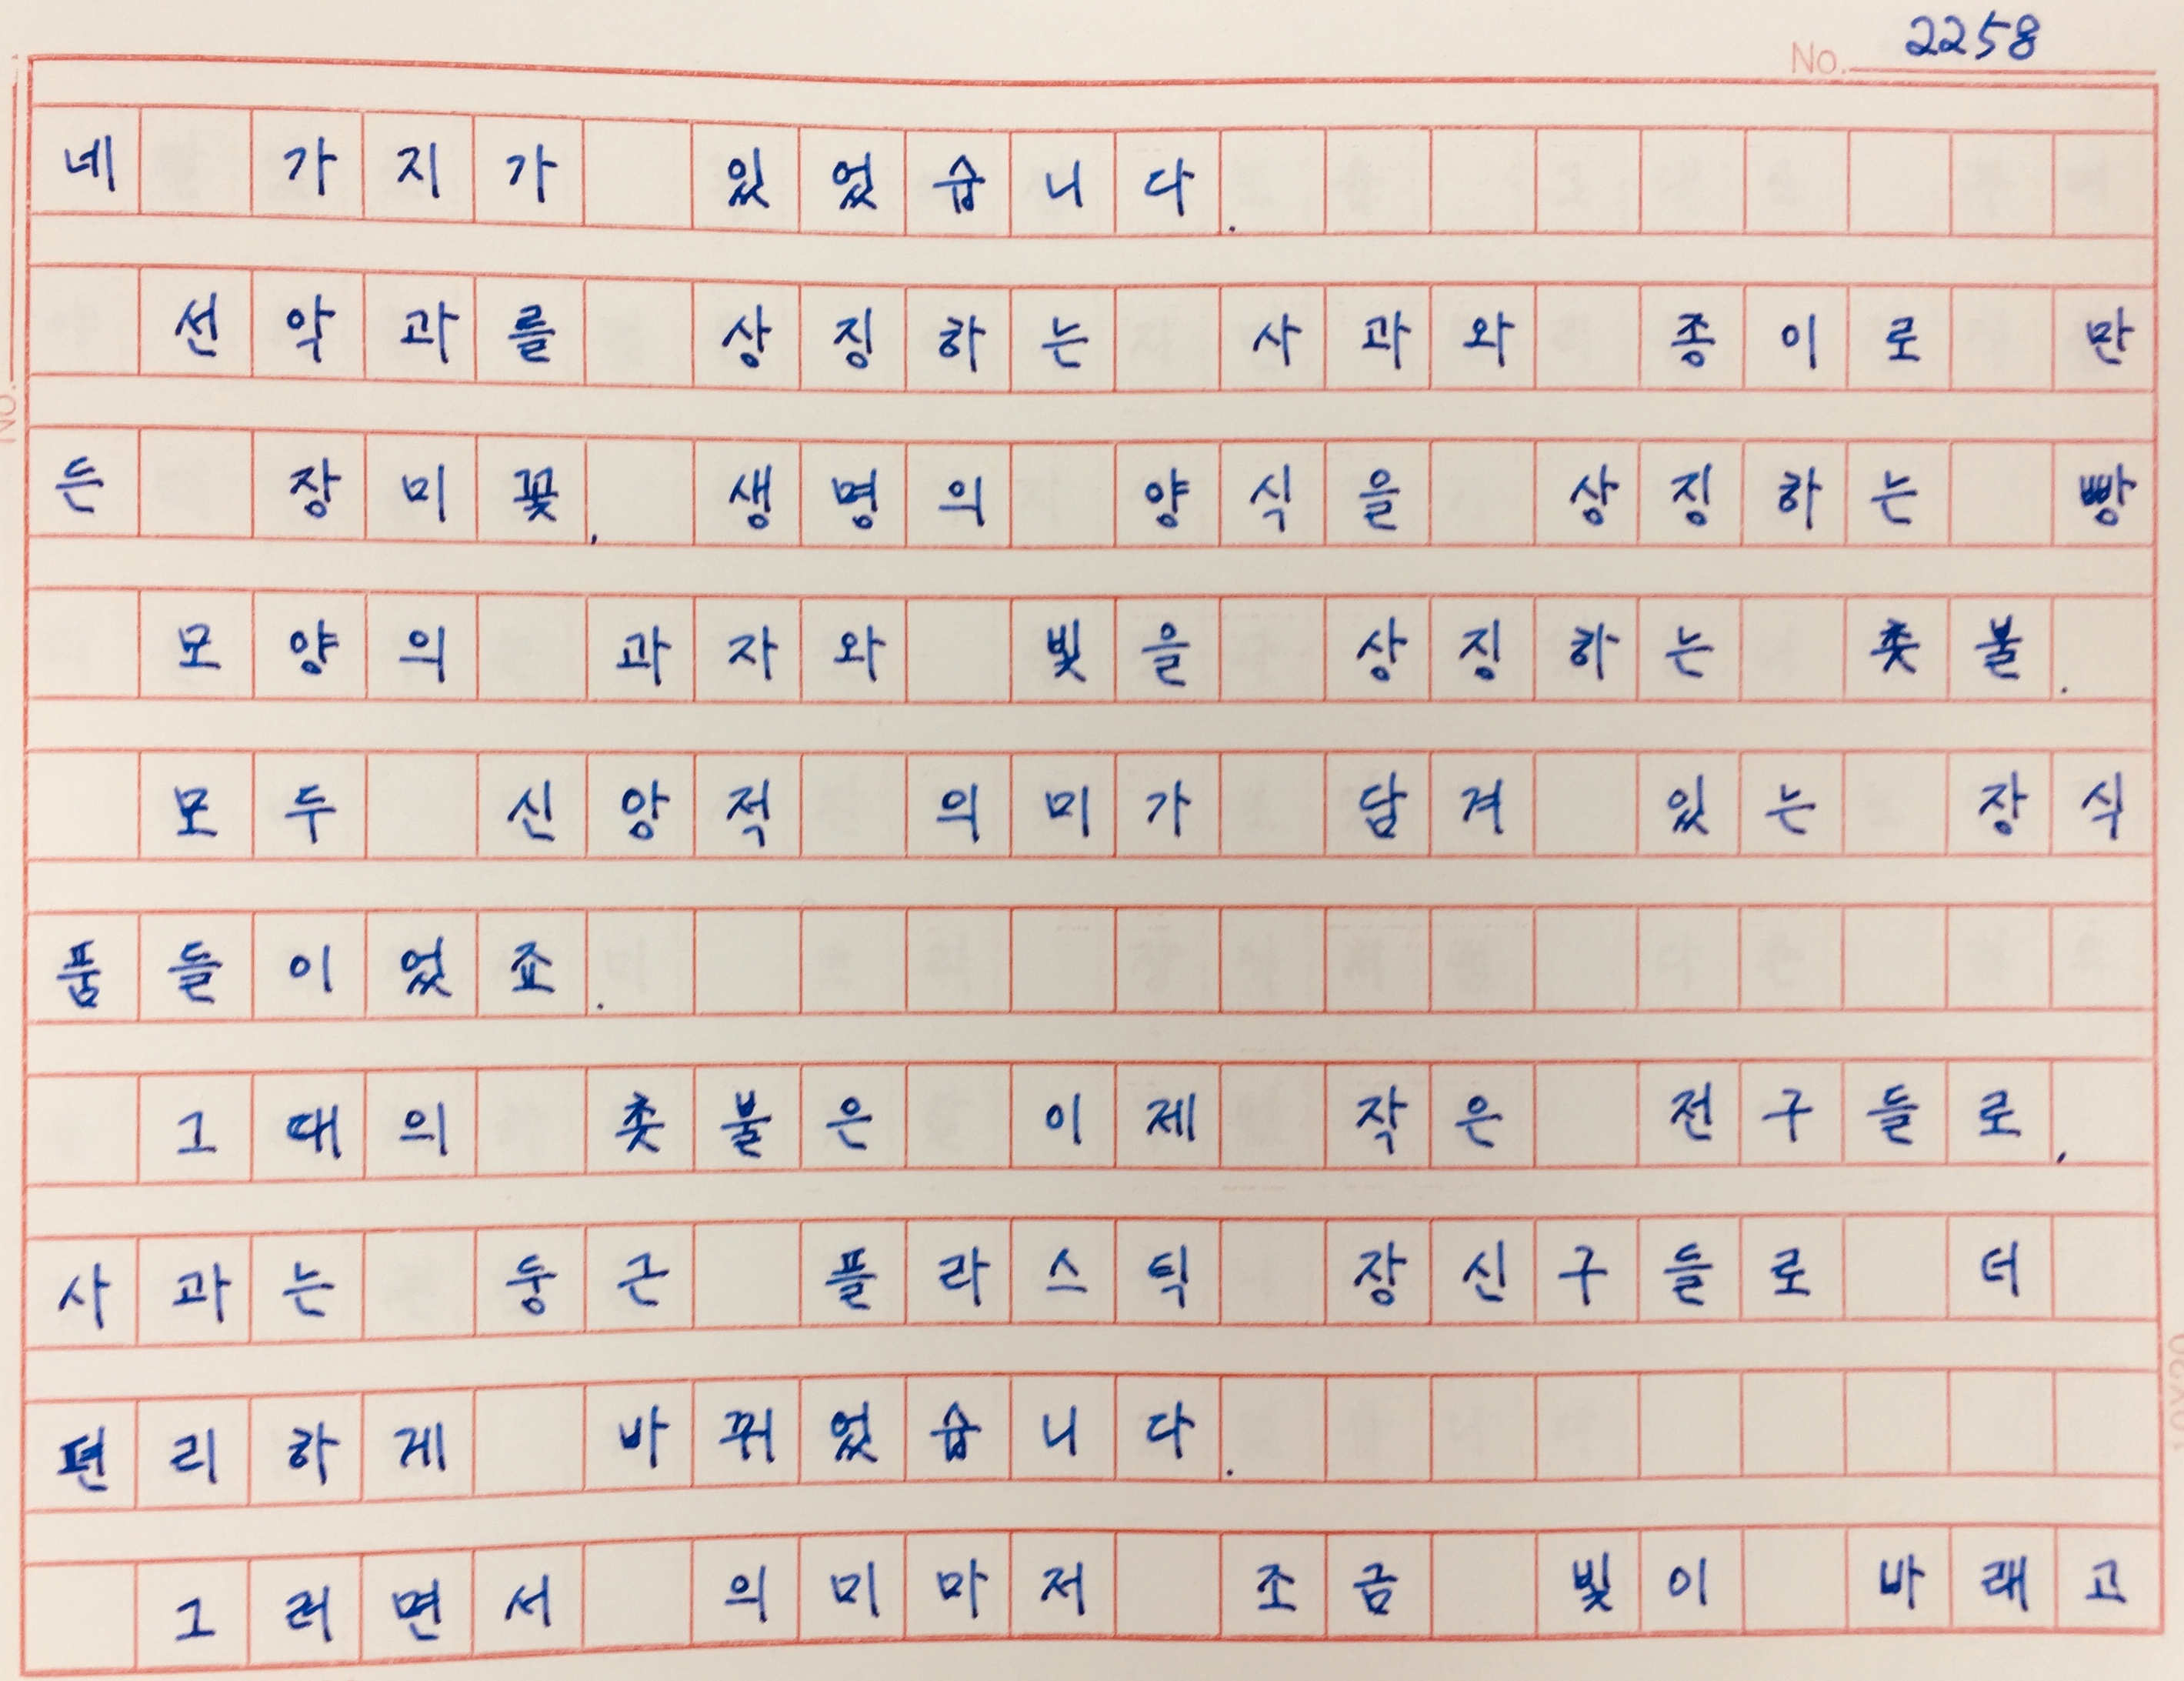 No. 2258
네 가지가 있었습니다.
선악과를 상징하는 사과와 종이로 만
든 장미꽃, 생명의 양식을 상징하는 빵
모양의 과자와 빛을 상징하는 촛불.
모두 신앙적 의미가 담겨 있는 장식
품들이었죠.
그대의 촛불은 이제 작은 전구들로,
사과는 둥근 플라스틱 장신구들로 더
편리하게 바뀌었습니다.
그러면서 의미마저 조금 빛이 바래고
No.